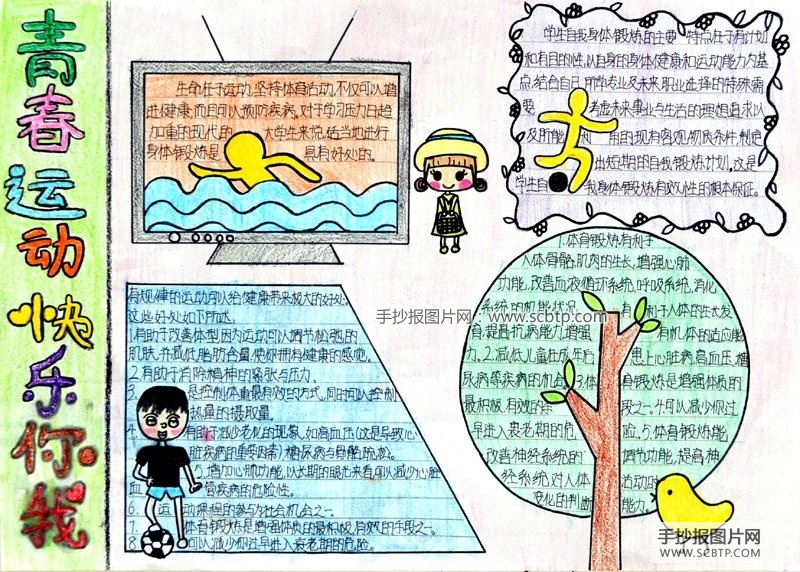 青春运动快乐你我
生命在于运动,坚持体育活动,不仅可以增
进健康,而且可以预防疾病。对于学习压力日趋
加重的现代的大学生来说,恰当地进行
身体锻炼是具有好处的。
学生自我身体锻炼的主要特点在于有计划
和有目的性,从自身的身体健康和运动能力为基
点,结合自己所学专业及未来职业选择的特殊需
要考虑未来事业与生活的理想追求以
及所能利用的现有客观物质条件,制定
出短期的自我锻炼计划。这是
学生自我身体锻炼有效性的根本保证。
有规律的运动可以给健康带来极大的好处,
这些好处如下所述。
1.有助于改善体型,因为运动可以调节松弛的
肌肤,并减低脂肪含量,使你拥有健康的感觉。
2.有助于消除精神的紧张与压力。
3.是控制体重最有效的方式,同时可以控制
热量的摄取量。
4.有助于减少老化的现象,如高血压(这是导致心
脏疾病的重要因素)糖尿病与骨骼疏松。
5.增加心肺功能,以长期的眼光来看可以减少心脏
血管疾病的危险性。
6.运动课程的参与为社会机会之一。
7.体育锻炼是增强体质的最积极,有效的手段之一。
8.可以减少你过早进入衰老期的危险。
1.体育锻炼有利于
人体骨骼、肌肉的生长,增强心肺
功能,改善血液循环系统,呼吸系统,消化
系统的机能状况,有利于人体的生长发
育,提高抗病能力,增强有机体的适应能
力。2.减低儿童在成年后患上心脏病,高血压,糖
尿病等疾病的机会。3.体育锻炼是增强体质的
最积极,有效的手段之一。4.可以减少你过
早进入衰老期的危险。5.体育锻炼能
改善神经系统的调节功能,提高神
经系统对人体活动时
变化的判断能力。
手抄报图片网:www.scbtp.com
手抄报图片网
WWW.SCBTP.COM